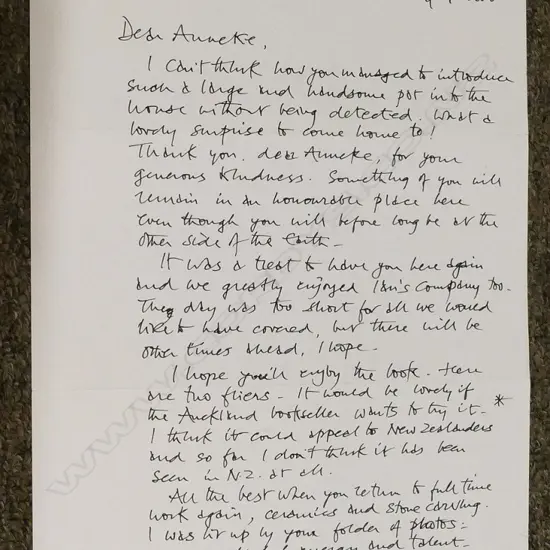 Dear Anneke,
I can't think how you managed to introduce
such a large and handsome pot into the
house without being detected. What a
lovely surprise to come home to!
Thank you, dear Anneke, for your
generous kindness. Something of you will
remain in an honourable place here
even though you will before long be at the
other side of the earth -
It was a treat to have you here again
and we greatly enjoyed Ian's company too.
The day was too short for all we would
like to have covered, but there will be
other times ahead, I hope -
I hope you'll enjoy the book. Here
are two fliers - It would be lovely if
the Auckland bookseller wants to try it - *
I think it could appeal to New Zealanders
and so far I don't think it has been
seen in N.Z. at all.
All the best when you return to full time
work again, ceramics and stone carving.
I was lit up by your folder of photos:
and talent -